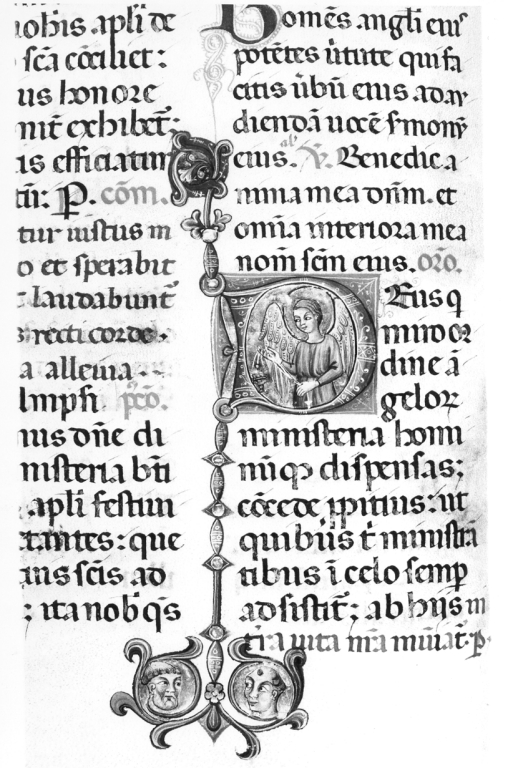 nobis apl̄i de
scā cōciliet:
us honore
nit exhibet:
is efficiatur
P. cōm.
tur iustus in
o et sperabit
laudabunt
recti corde.
a alleuia
pꝯō.
nis dn̄e di
nisteria bt̄i
apl̄i festiui
tantes: que
ius scīs ad
; ita nob̄ q̄s
B omēs angli eiꝰ
potētes ūtute qui fa
citis ūbū eius ad au
diendā uocē s̄monū
eius. V̄. Benedic a
nima mea dn̄m. et
omīa interiora mea
nom̄ scm̄ eius. oro.
D Eus q
miro or
dine ā
geloꝝ
ministeria homi
nūqꝫ dispensas;
cōcede ꝓpitius: ut
quibus t̄ ministrā
tibus ī celo semꝑ
adsistit̄; ab hiis in
t̄ra uita nr̄a muniat̄. p̄